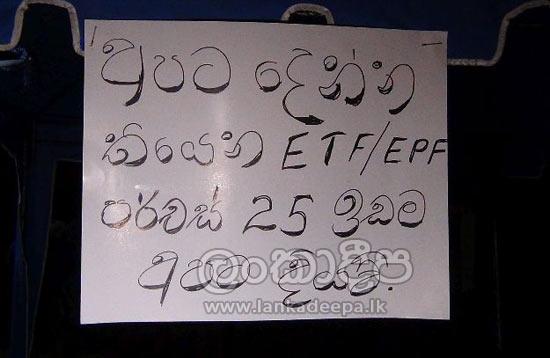 අපට දෙන්න
තියෙන ETF/EPF
පර්චස් 25 ඉඩම
අපට දියව්.
ලංකාදීප
www.lankadeepa.lk